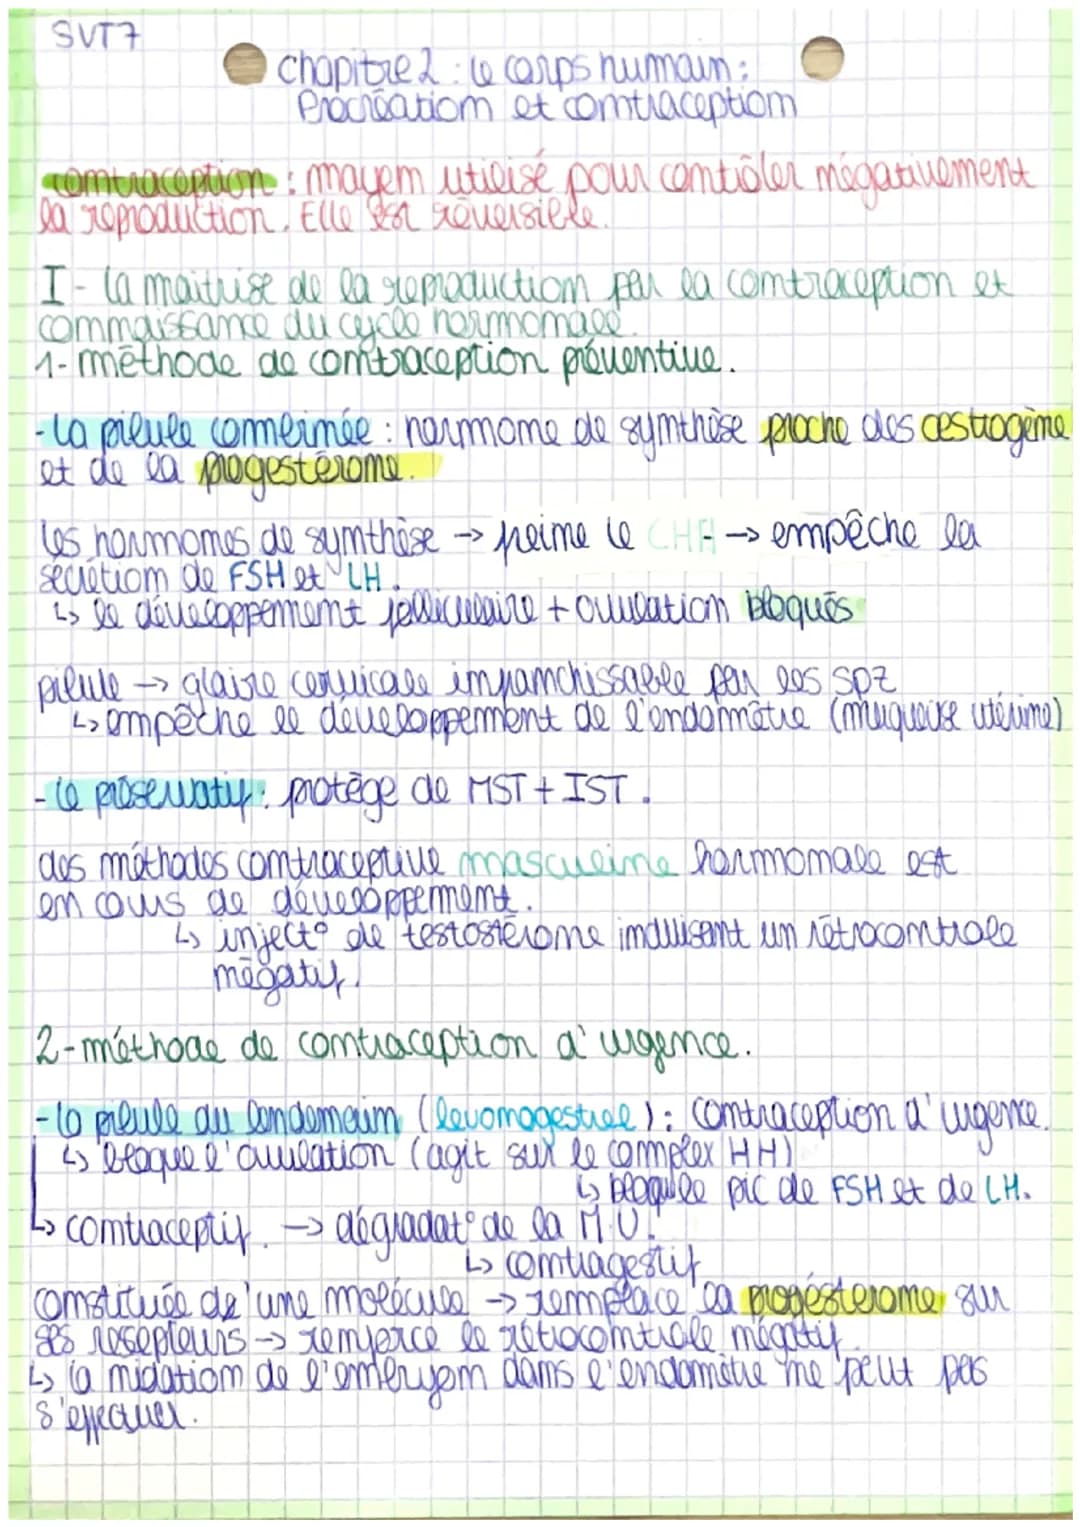 SVT7
chapitre 2 : le corps humain :
Procréation et contraception
contraception : moyen utilisé pour contôler négativement
la reproduction. Elle est réversible.
I- la maitrise de la reproduction par la contraception et
connaissance du cycle hormonale.
1- méthode de contraception préventive.
- la pilule combimée : hormone de synthèse proche des œstrogène
et de la progestérone.
les hormones de synthèse → freine le CHH → empêche la
sécrétion de FSH et LH.
↳ le développement folliculaire + ovulation bloqués
pilule → glaire cervicale infranchissable par les SPZ
↳ empêche le développement de l'endomètre (muqueuse utérine)
- le préservatif : protège de MST + IST.
des méthodes contraceptive masculine hormonale est
en cours de développement.
↳ inject° de testostérone induisant un rétrocontrole
négatif.
2- méthode de contraception d'urgence.
- la pilule du lendemain (levonogestrel) : contraception d'urgence.
↳ bloque l'ovulation (agit sur le complex HH)
↳ bloque le pic de FSH et de LH.
↳ contraceptif. → dégradat° de la M.U.
↳ contragestif
constituée de'une molécule → remplace la progésterone sur
ses resepteurs → renforce le rétrocontrole négatif.
↳ la nidation de l'embryon dans l'endomètre ne peut pas
s'effectuer.